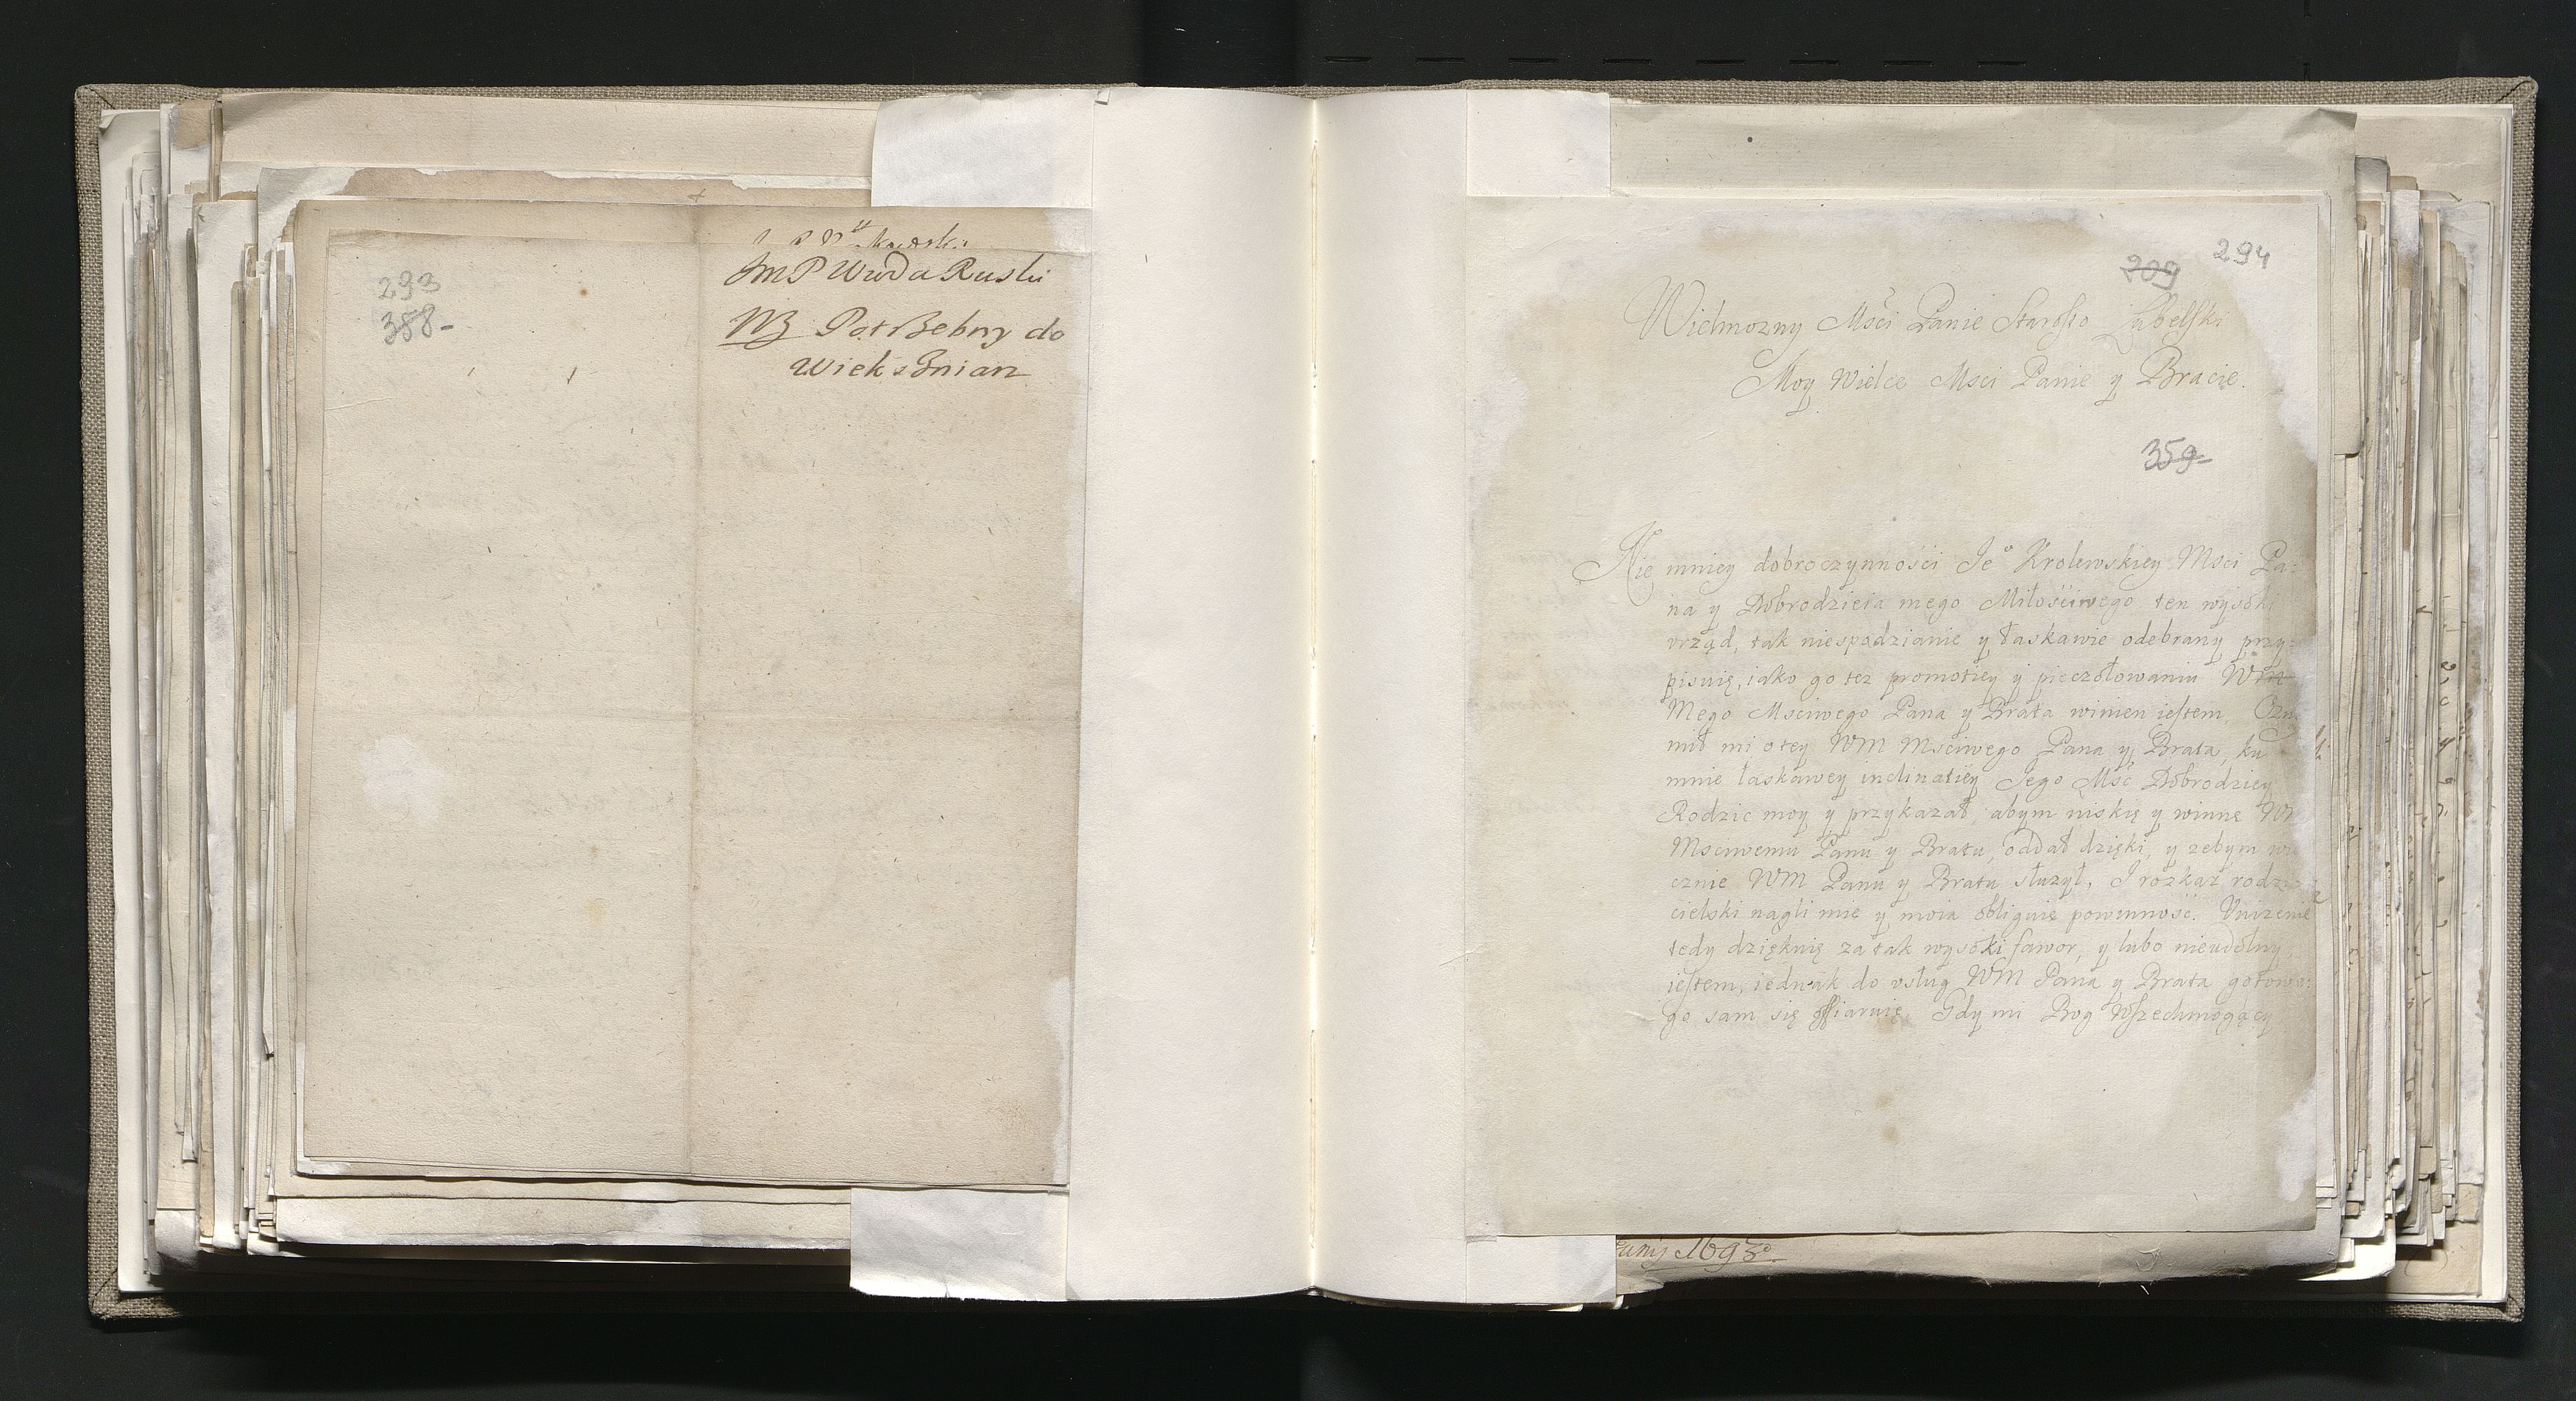 293
388-
JmP Wwda Ruski
NB Potrzebny do
Wieksznian
294
209
Wielmozny Msći Panie Starosto Lubelski
Moy Wielce Msci Panie y Bracie.
359-
Nie mniey dobroczynnośći Je° Krolewskiey Msci Pa:
na y Dobrodzieia mego Miłośćiwego ten wysoki
vrząd, tak niespodzianie y łaskawie odebrany przy:
pisuię, iako go tez promotiey y pieczołowaniu WM
Mego Msciwego Pana y Brata winien iestem.
mił mi o tey WM Msciwego Pana y Brata, ku
mnie łaskawey inclinatiey Jego Msć Dobrodziey
Rodzic moy y przykazał, abym niskie y winne
Msciwemu Panu y Bratu, oddał dzięki, y zebym
cznie WM Panu y Bratu słuzył, I rozkaz rodzi
cielski nagli mie y moia obliguie powinność. Vnizenie
tedy dziękuię za tak wysoki fawor, y lubo nieudolny
iestem, iednak do vsług WM Pana y Brata gotowe:
go sam się offiaruię. Gdy mi Bog Wszechmogący
Junij 1693